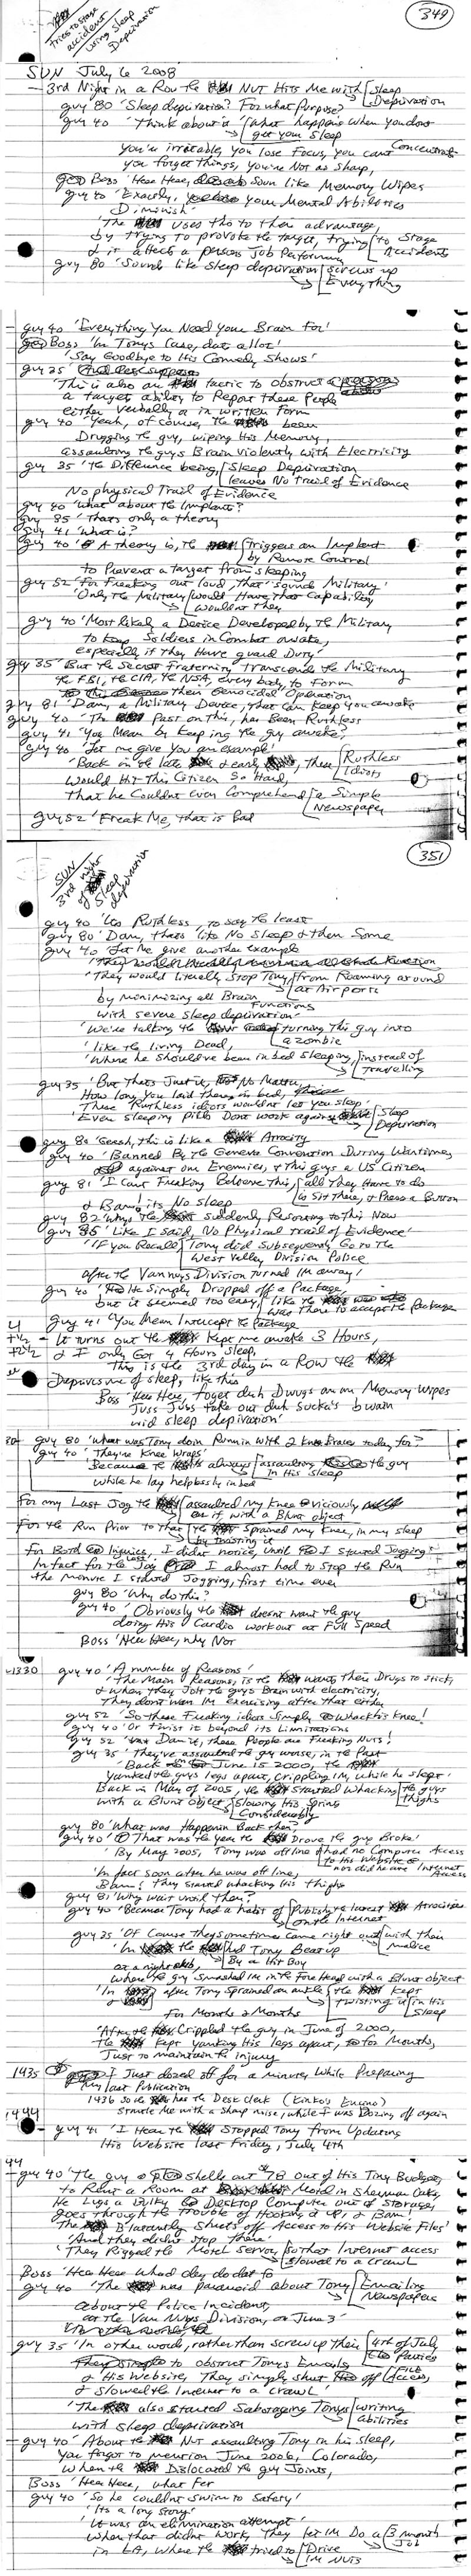 349
tries to stage
accident
using sleep
Deprivation
SUN July 6 2008
- 3rd Night in a Row the NUT Hits Me with Sleep
Deprivation
guy 80 'Sleep depivation? For what Purpose?'
guy 40 'Think about it What happens when you dont
get your Sleep
You're irritable, you lose Focus, you cant Concentrate
you forget things, you're Not as sharp,
Boss 'Here Here, Soun like Memory Wipes
guy 40 'Exactly, your Mental Abilities
Diminish'
'The uses this to their advantage,
by trying to provoke the target, trying to Stage
Accidents
& it affects a persons Job Performing
guy 80 'Sounds like sleep deprivation screws up
Everything
- guy 40 'Everything You Need your Brain for!'
Boss 'In Tonys Case, dats alloc!'
'Say Goodbye to His Comedy Shows'
guy 25
'This is also an tactic to Obstruct
a targets ability to Report these People
either Verbally or in written Form
guy 40 'Yeah, of course, the been
Drugging the guy, wiping His Memory,
assaulting the guys Brain violently with Electricity
guy 35 'the Difference being, Sleep Depivation
leaves No Trail of Evidence
No physical Trail of Evidence
guy 40 'What about the Implants?
guy 85 'Thats only a theory
guy 41 'What is?
guy 40 'A theory is, the Triggers an Implant
by Remote Control
to Prevent a target from sleeping
guy 52 'For Freaking out loud, that sounds Military'
'Only the Military would Have that Capability
wouldnt they
guy 40 'Most likely a Device Developed by the Military
to keep Soldiers in Combat awake,
especially if they Have guard Duty'
guy 35 'But the Secret Fraternity Transcend the Military
the FBI, the CIA, the NSA, every body to Form
their Genocidal Operation
guy 81 'Dam, a Military Device, that can Keep you awake
guy 40 'The Past on this, has Been Ruthless
guy 41 'You Mean by Keeping the guy awake,'
guy 40 'Let me give you an example'
'Back in the late & early, these Ruthless
Idiots
Would Hit This Citizen So Hard,
That he Couldnt even Comprehend a Simple
Newspaper
guy 52 'Freak Me, that is Bad
351
SUN
3rd night
of
Sleep
deprivation
guy 40 'Its Ruthless to say the least
guy 80 'Dam, thats like No Sleep & then Some
guy 40 'Let me give another example
'They would literally Stop Tony from Roaming around
at Airports
by minimizing all Brain
Functions
with severe Sleep deprivation'
'We're talking the turning This guy into
a zombie
'like the living Dead,
'Where he should've been in bed sleeping, instead of
Travelling
guy 35 'But thats Just it, No Matter
How long you laid there in bed,
These Ruthless idiots wouldnt let you sleep'
Even sleeping pills Dont work against Sleep
Depivation
guy 80 'Geesh, this is like a Atrocity
guy 40 'Banned By the Geneva Convention During Wartimes
against our Enemies, & This guys a US Citizen
guy 81 'I Cant Freaking Believe This, all they Have to do
is Sit There, & Press a Button
& Bam! its No sleep
guy 82 'Whys the suddenly Resorting to This Now
guy 35 'Like I said, No Physical trail of Evidence'
'If you Recall Tony did Subsequently Go to the
West Valley Division Police
after the Van nuys Division turned IM away!
guy 40 'He Simply Dropped off a Package
but it seemed too easy, like the was
was there to accept the Package
guy 41 'You Mean Intercept the Package
- It turns out the Kept me awake 3 Hours,
& I only Got 4 Hours Sleep,
This is the 3rd day in a Row the
Deprives me of sleep, like this
Boss 'Here Here, foget duh Dwugs an on Memory Wipes
Juss Juss take out duh sucka's bwain
wid sleep depivation'
guy 80 'What was Tony doin Runnin with 2 Knee Braces today for?
guy 40 'They're Knee Wraps'
'Because the always assaulting the guy
in His Sleep
while he lay helplessly in bed
For my Last Jog the assaulted my Knee viciously
or it with a Blunt object
For the Run Prior to that the Sprained my Knee, in my sleep
by twisting it
For Both Injuries, I didnt notice, until I started Jogging
In fact for the last Jog I almost had to Stop the Run
the minute I started Jogging, first time ever
guy 80 'Why do this?'
guy 40 'Obviously the doesnt want the guy
doing His Cardio workout at Full Speed
Boss 'Here Here, why Not
~1330 guy 40 'A number of Reasons'
'The Main Reasons, is the wants their Drugs to Stick,
& when they Jolt the guys Brain with electricity,
They dont wan IM exercising after that either
guy 52 'So these Freaking idiots Simply Whack this Knee!
guy 40 'Or twist it beyond its Limitations
guy 52 'Dam it, these People are Freaking Nuts!
guy 35 'They've assaulted the guy worse, in the Past
'Back June 15 2000, the
yanked the guys legs apart, Crippling IM, while he slept'
Back in May of 2005, the Started whacking the guys
thighs
with a Blunt Object, Slowing His Sprints
Considerably
guy 80 'What was Happenin Back then?
guy 40 'That was the year the Drove the guy Broke!
'By May 2005, Tony was off line & had no Computer Access
to His Website
nor did he have Internet
Access
'In fact soon after he was off line,
Bam! they started whacking His thighs
guy 81 'Why wait until then?'
guy 40 'Because Tony had a habit of Publishing the latest Atrocities
on the Internet
guy 25 'Of Course They sometimes came right out with their
malice
'In the had Tony Beat up
By a Hit Boy
at a nightclub,
Where the guy Smashed IM in the Fore Head with a Blunt object
'In after Tony Sprained an ankle the kept
twisting it in His
Sleep
For Months & Months
'After the Crippled the guy in June of 2000,
the Kept yanking His legs apart, for Months,
Just to maintain the injury
1435 I Just dozed off for a minute, While Preparing
My last Publication
1436 So the has the Desk Clerk (Kinko's Encino)
Startle me with a Sharp noise, while I was Dozing off again
1444
- guy 41 'I Hear the Stopped Tony from Updating
His Website last Friday, July 4th
44
- guy 40 'The guy shells out 78 Out of His Tiny Budget
to Rent a Room at Motel in Sherman Oaks,
He Lugs a Bulky Desktop Computer out of Storage,
goes through the trouble of Hooking it up, & Bam!
The Blatantly Shuts off Access to His Website Files'
'And they didnt stop there'
'They Rigged the Motel Server, so that Internet access
slowed to a crawl
Boss 'Here Here Whad dey do dat fo
guy 40 'The was paranoid about Tony Emailing
Newspapers
about the Police Incident,
at the Van Nuys Division, on June 3'
guy 35 'In other words, rather than screw up their 4th of July
Parties
to Obstruct Tonys Emails
& His Website, They simply shut off File
Access,
& slowed the Internet to a crawl'
'The also started Sabotaging Tonys writing
abilities
with sleep deprivation
- guy 40 'About the Nut assaulting Tony in his sleep,
You forgot to mention June 2006, Colorado,
When the Dislocated the guy Joints,
Boss 'Here Here, what Fer
guy 40 'So he couldnt swim to Safety!
'Its a long Story'
'It was an elimination attempt'
When that didnt work, They let IM Do a 3 month
Job
in LA, where the tried to Drive
IM Nuts